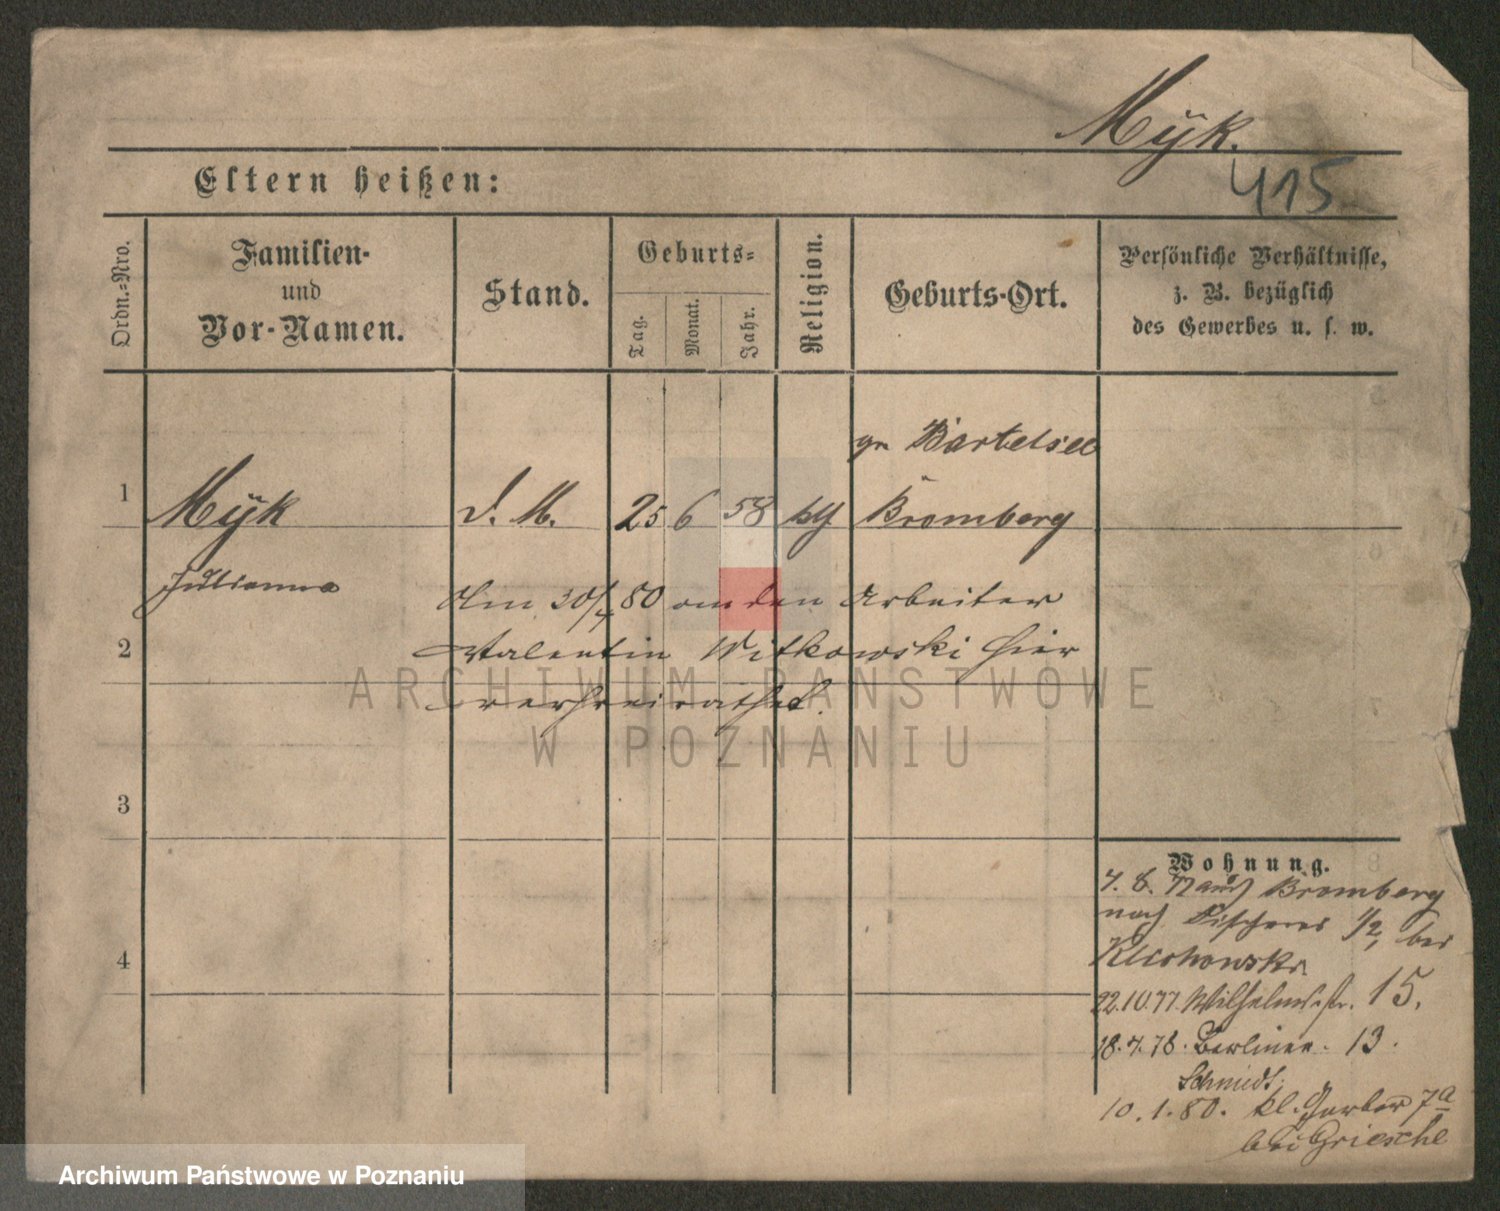 Myk.
415
Eltern heißen:
Ordn.-Nro.
Familien-
und
Vor-Namen.
Stand.
Geburts-
Tag.
Monat.
Jahr.
Religion.
Geburts-Ort.
Persönliche Verhältnisse,
z. B. bezüglich
des Gewerbes u. s. w.
Bartelsee
1 Myk d. M. 25 6 58 Bromberg
Julianna
Am 30/7 80 an den Arbeiter
2 Valentin Witkowski hier
verheirathet.
3
4
Wohnung.
Bromberg
nach Fischerei 1/2, bei
22.10.77. Wilhelmstr. 15.
18.7.78. Berliner. 13.
Schmidt.
10.1.80. kl. Gerber 7a
bei Griesche
ARCHIWUM PAŃSTWOWE
W POZNANIU
Archiwum Państwowe w Poznaniu